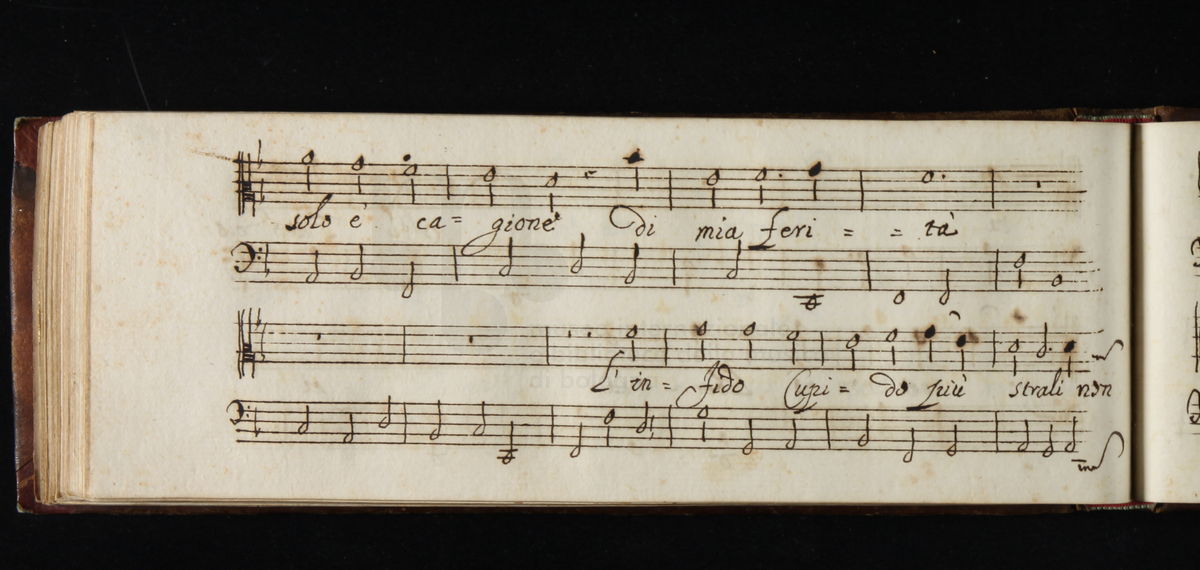 solo è ca= gione di mia feri = = tà
L' in= fido Cupi= do più strali non